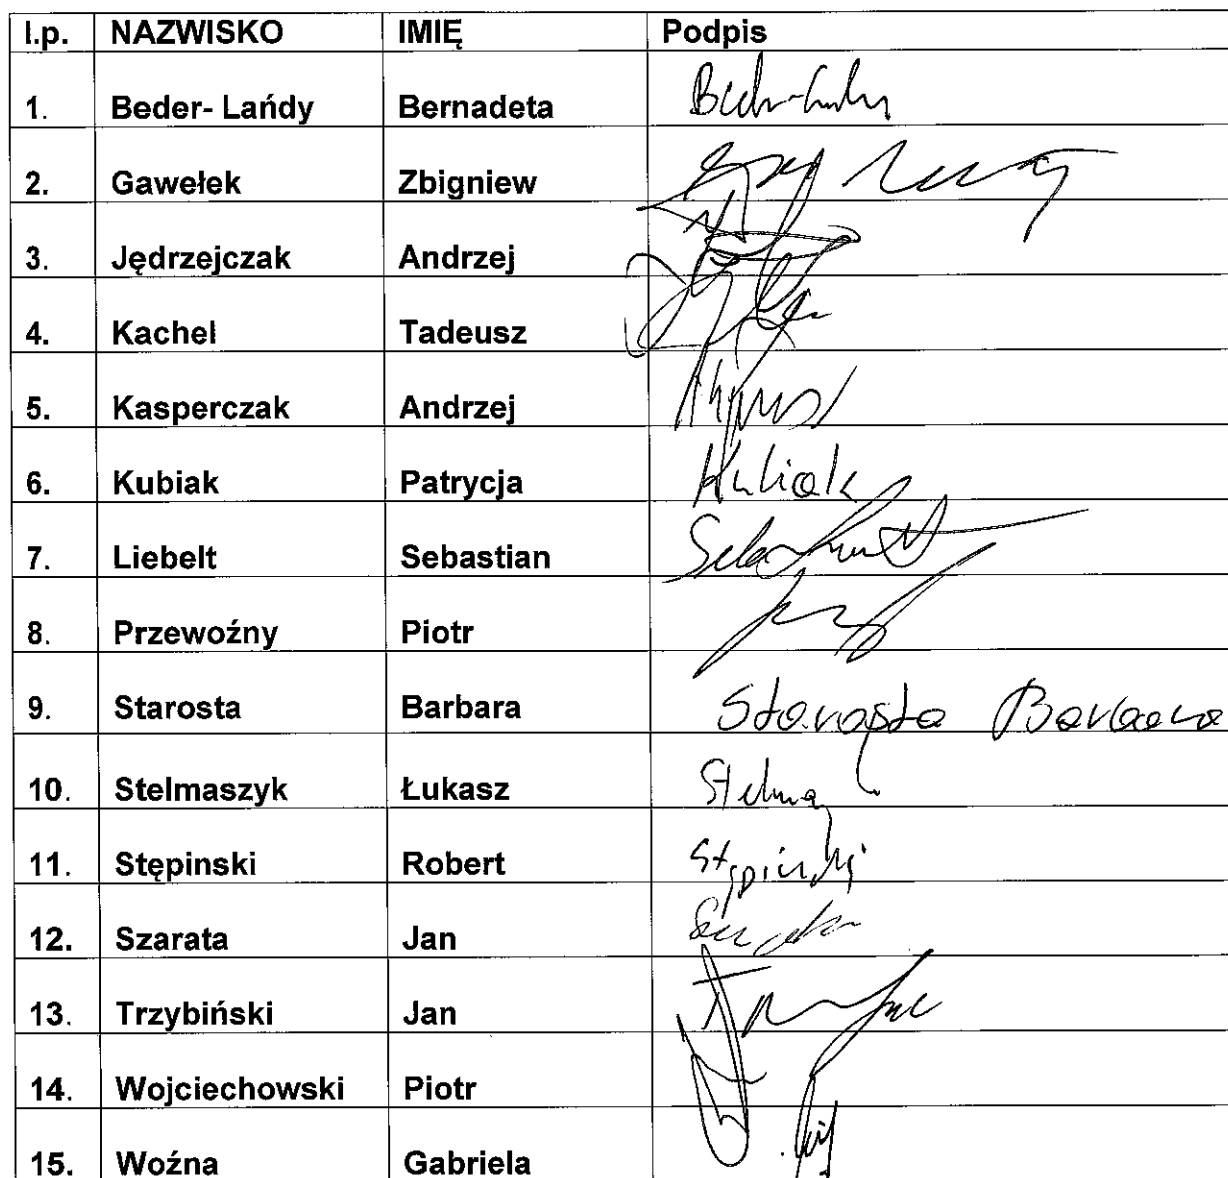 l.p. NAZWISKO IMIĘ Podpis
1. Beder- Lańdy Bernadeta
2. Gawełek Zbigniew
3. Jędrzejczak Andrzej
4. Kachel Tadeusz
5. Kasperczak Andrzej
6. Kubiak Patrycja Kubiak
7. Liebelt Sebastian
8. Przewoźny Piotr
9. Starosta Barbara Starosta Barbara
10. Stelmaszyk Łukasz
11. Stępinski Robert Stępiński
12. Szarata Jan
13. Trzybiński Jan
14. Wojciechowski Piotr
15. Woźna Gabriela